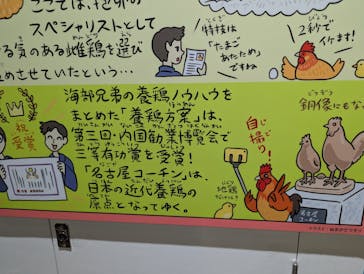 スペシャリストとして
る気のある雌鶏を選び
めさせていたという…
特技は
「たまご
あたため」
ですね
2秒で
イケます!
海部兄弟の養鶏ノウハウを
まとめた「養鶏方案」は、
第三回・内国勧業博覧会で
三等有功賞を受賞!
「名古屋コーチン」は、
日本の近代養鶏の
原点となってゆく。
祝
受賞
自撮り!
地鶏
銅像にもな
名古屋
コーチン